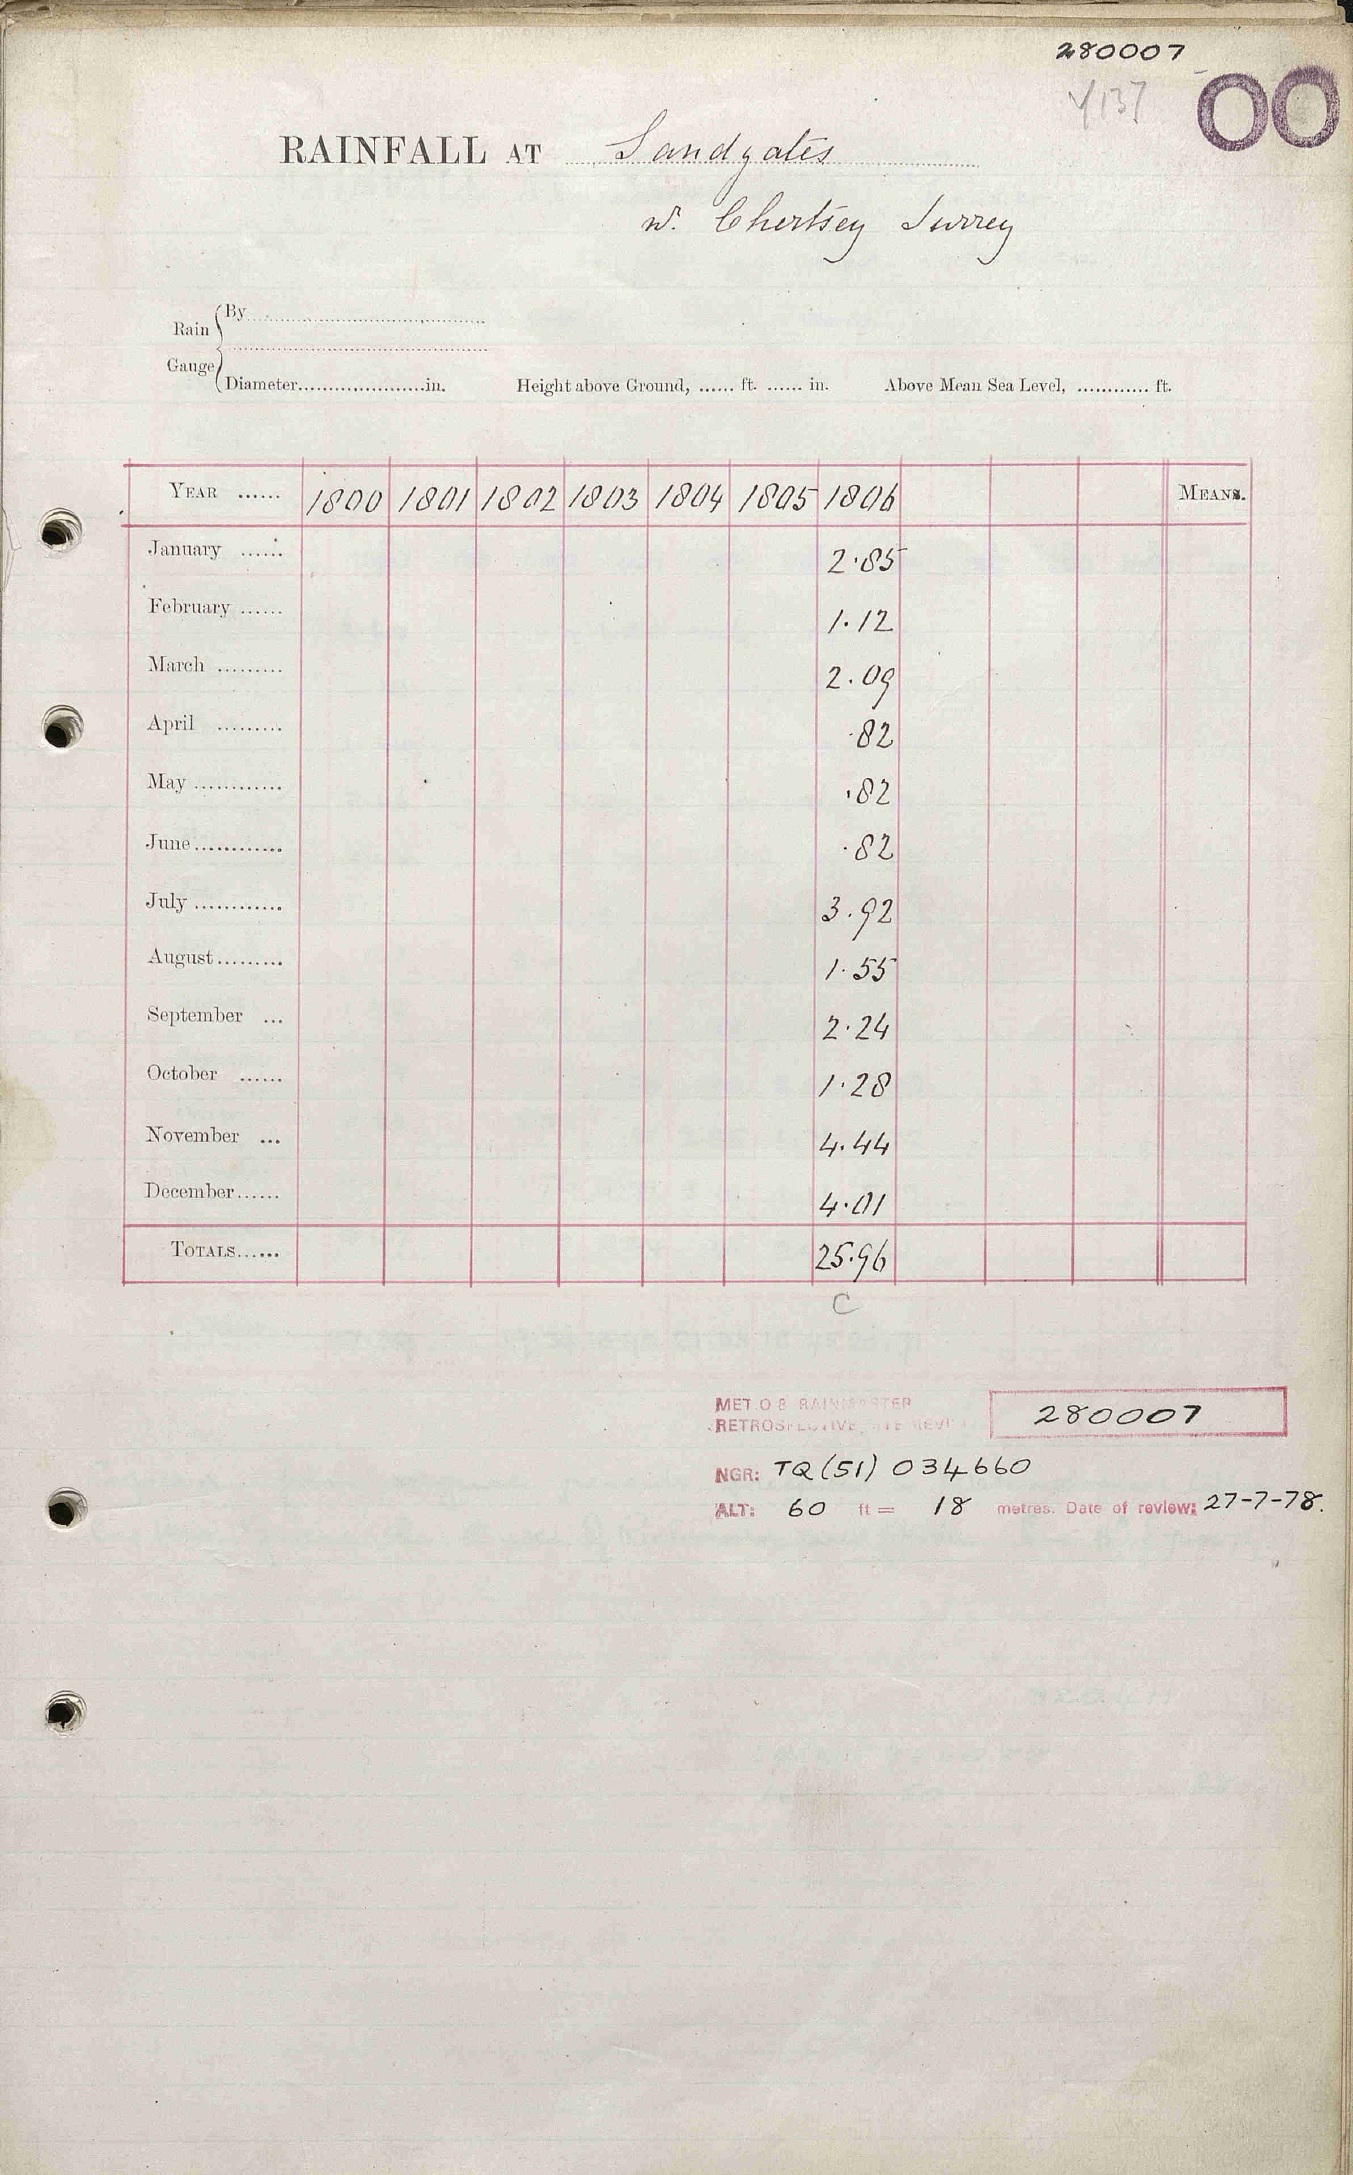 280007
Y137
00
RAINFALL AT Sandgates
nr. Chertsey Surrey
Rain Gauge
By
Diameter.....................in. Height above Ground, ...... ft. ...... in. Above Mean Sea Level, ............ ft.
YEAR ...... 1800 1801 1802 1803 1804 1805 1806 MEANS.
January ...... 2.85
February ...... 1.12
March ......... 2.09
April ......... .82
May ............ .82
June ............ .82
July ............ 3.92
August ......... 1.55
September ... 2.24
October ...... 1.28
November ... 4.44
December ...... 4.01
TOTALS ...... 25.96
C
MET.O 8 RAINMASTER
RETROSPECTIVE SITE REVIEW 280007
NGR: TQ(51) 034660
ALT: 60 ft = 18 metres. Date of review: 27-7-78.